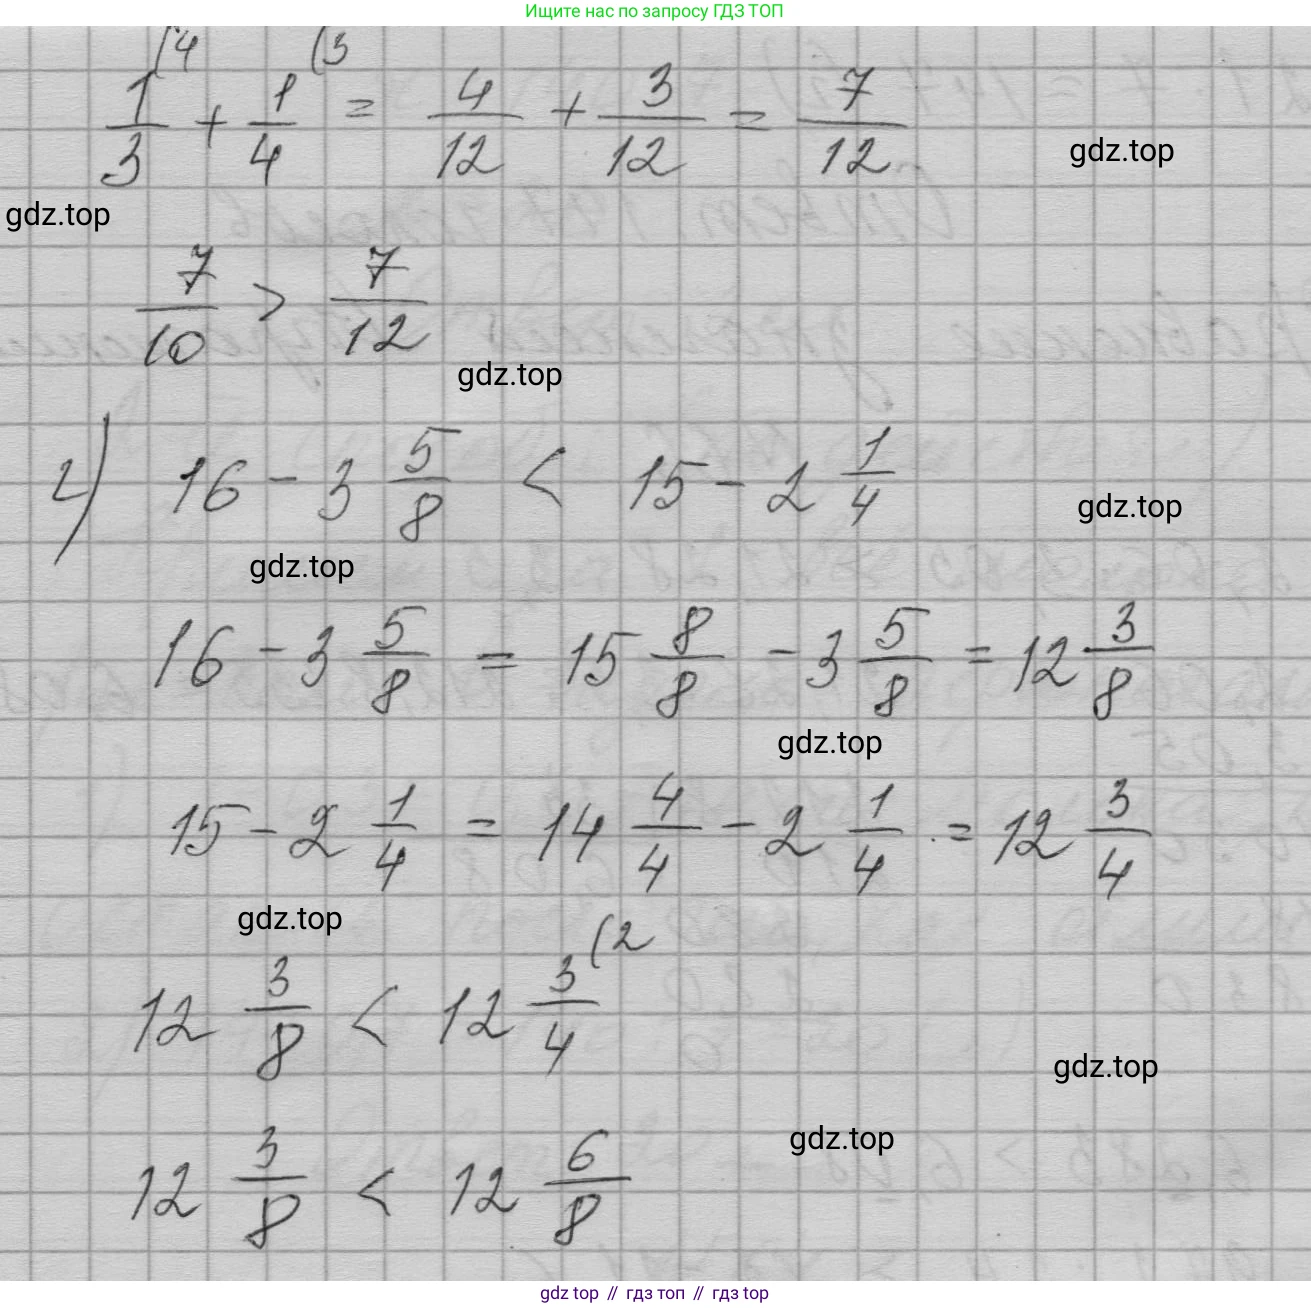 Ищите нас по запросу ГДЗ ТОП
1/3 (4 + 1/4 (3 = 4/12 + 3/12 = 7/12
gdz.top
gdz.top
7/10 > 7/12
gdz.top
г) 16 - 3 5/8 < 15 - 2 1/4
gdz.top
gdz.top
16 - 3 5/8 = 15 8/8 - 3 5/8 = 12 3/8
gdz.top
15 - 2 1/4 = 14 4/4 - 2 1/4 = 12 3/4
gdz.top
12 3/8 < 12 3/4 (2
gdz.top
gdz.top
12 3/8 < 12 6/8
gdz top // гдз топ // гдз top